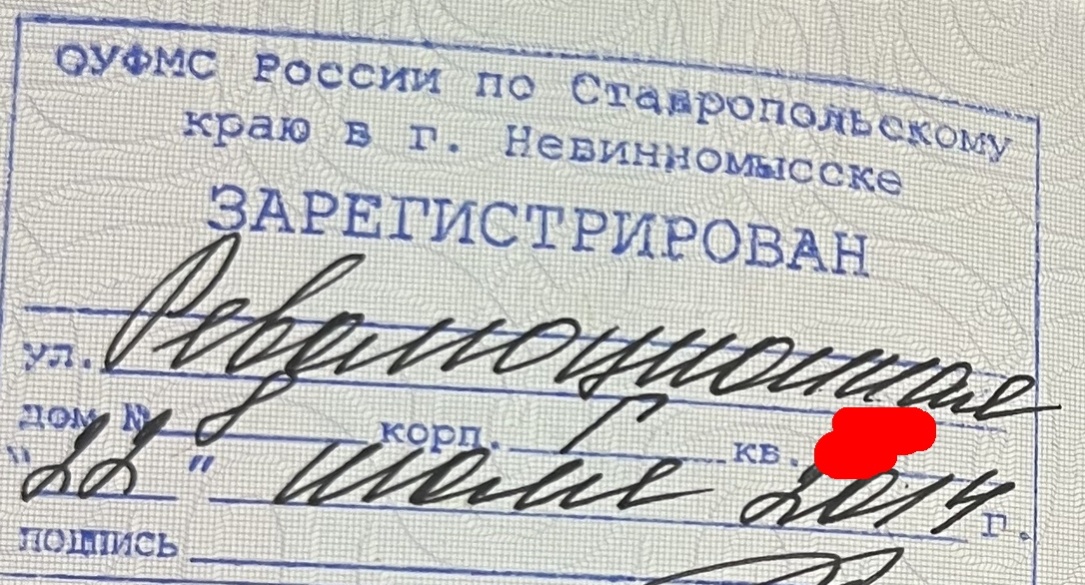 ОУФМС России по Ставропольскому
краю в г. Невинномысске
ЗАРЕГИСТРИРОВАН
ул. Революционная
дом № 8 корп. Г кв.
"22" июля 2014 г.
подпись